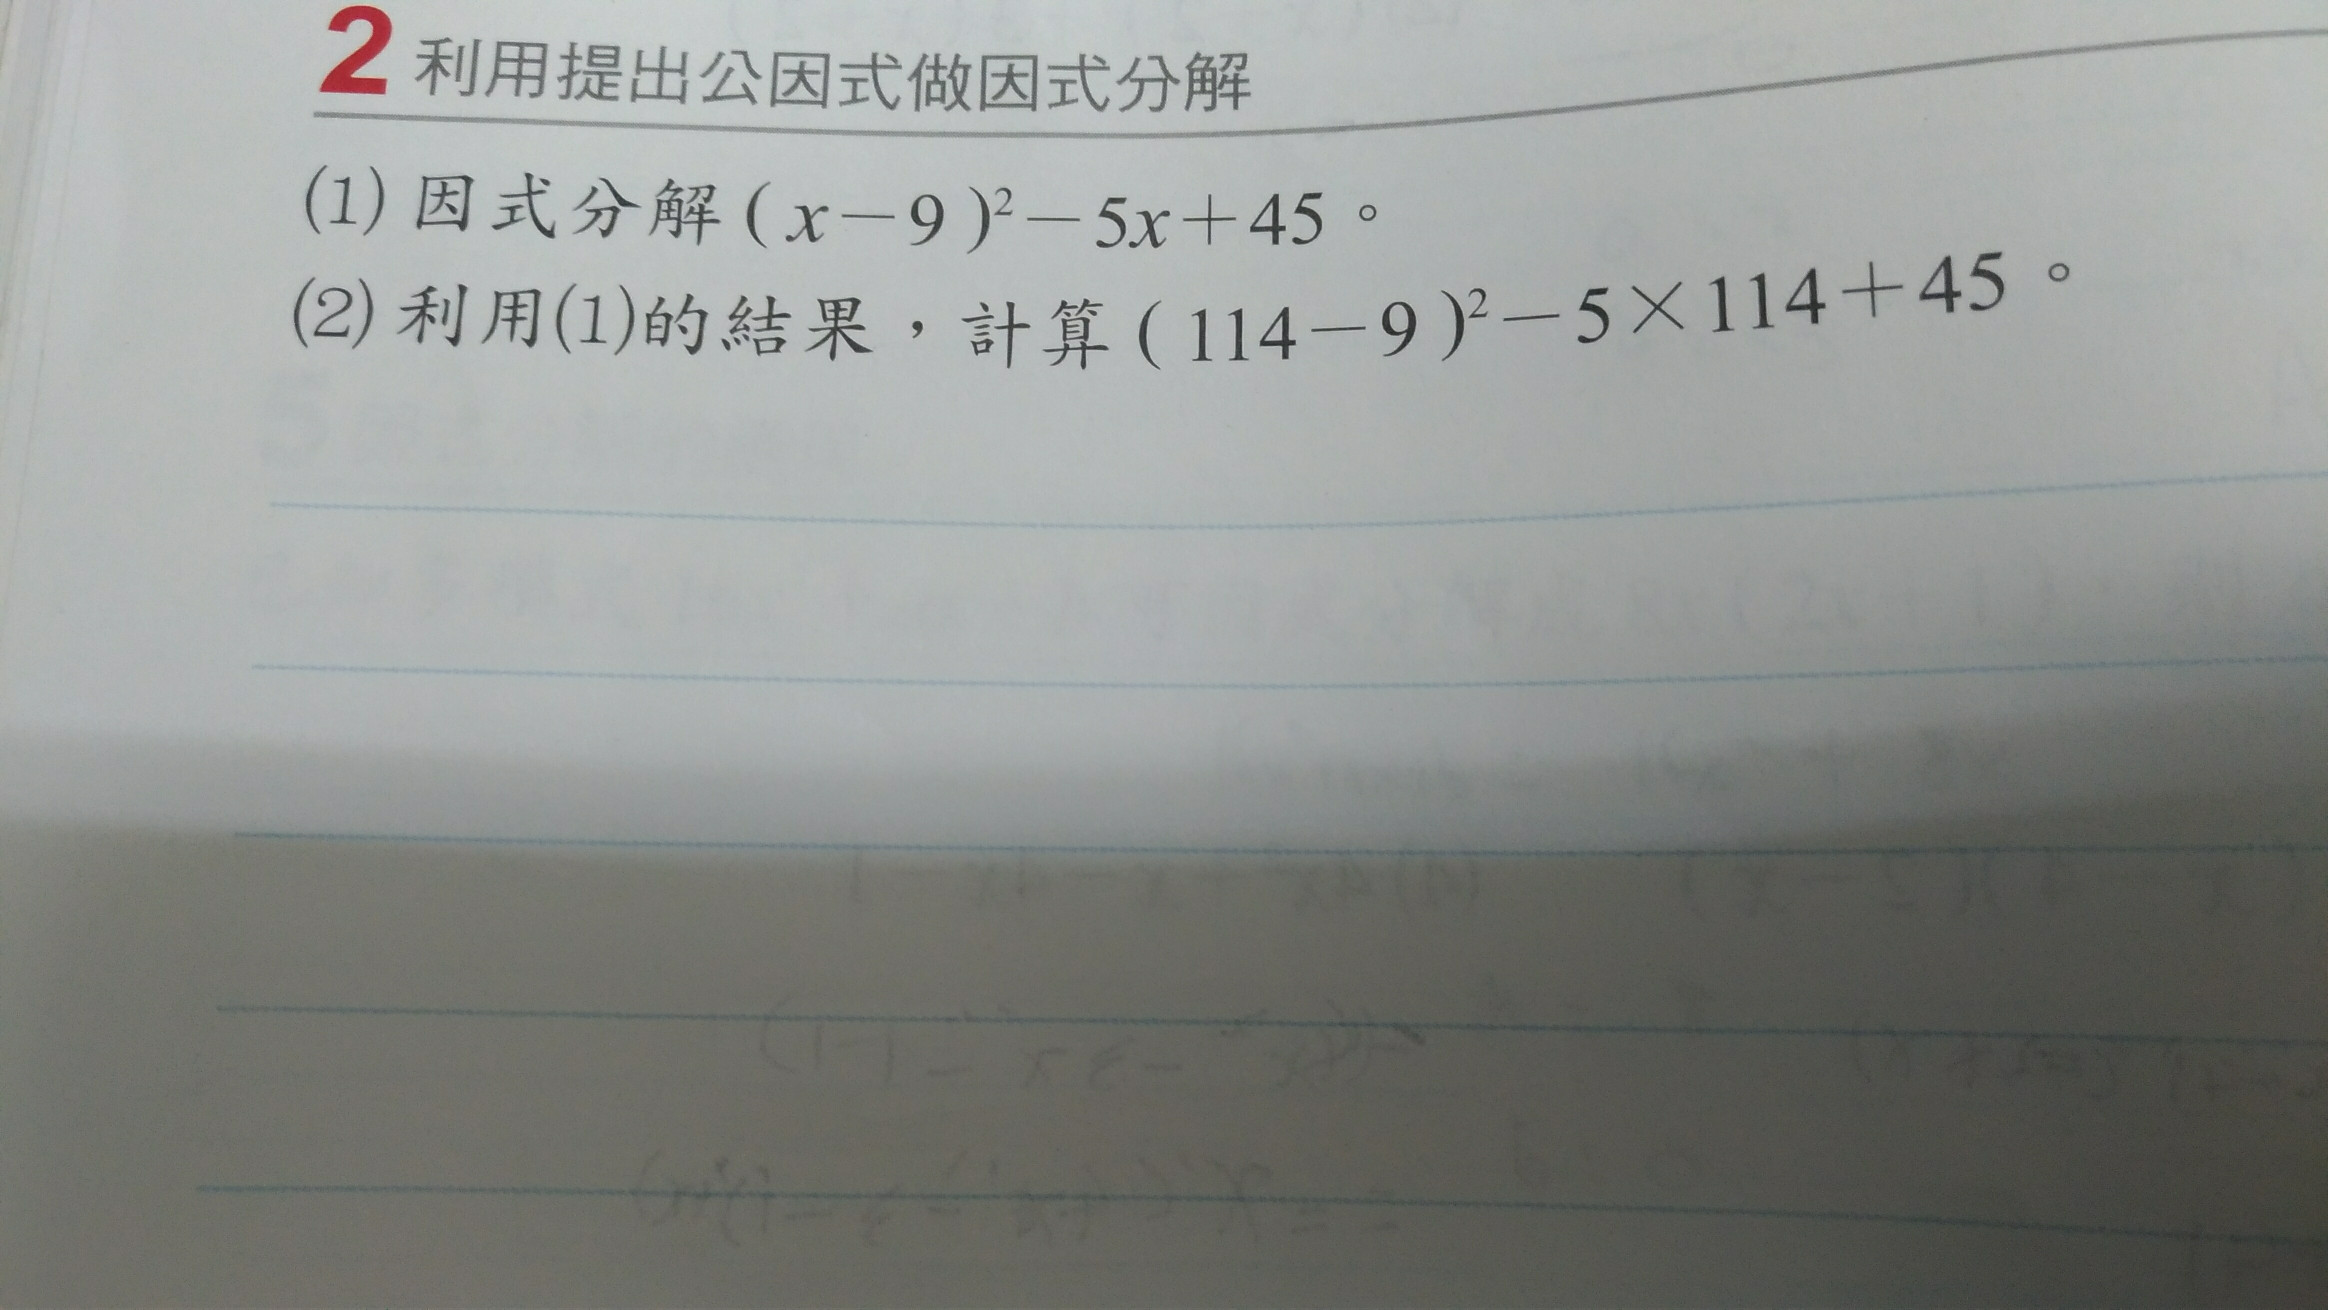 2 利用提出公因式做因式分解
(1) 因式分解 ( x－9 )²－5x＋45。
(2) 利用(1)的結果，計算 ( 114－9 )²－5×114＋45。